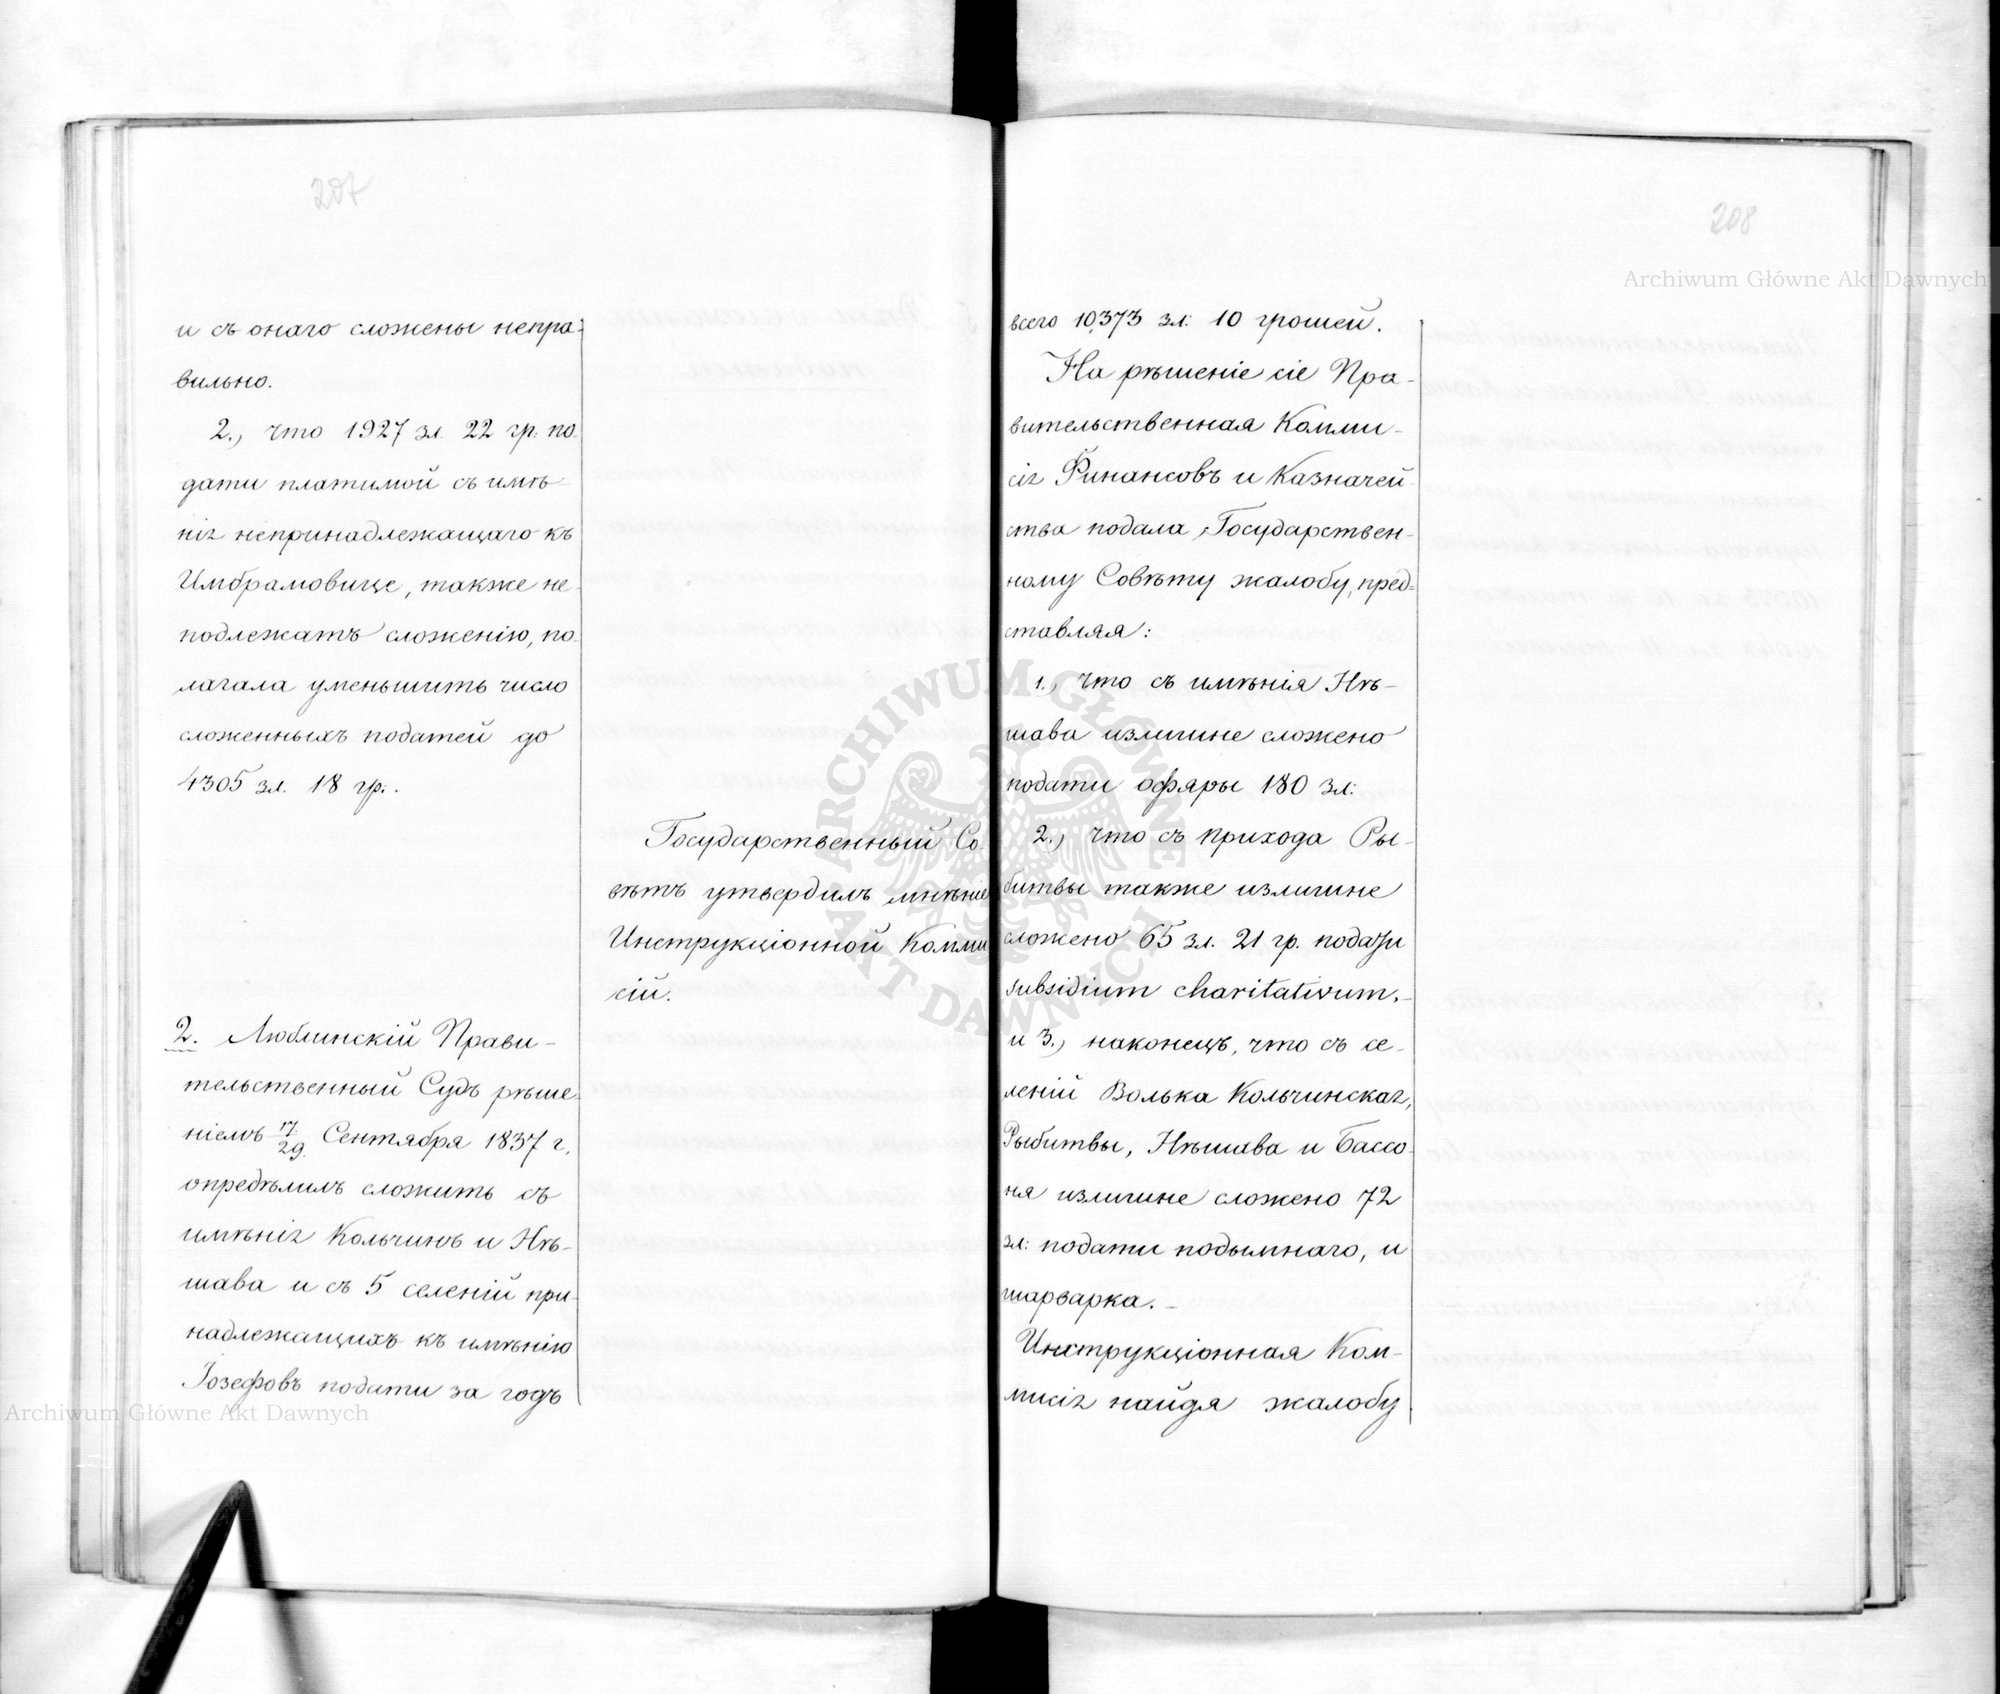 207
и съ онаго сложены непра-
вильно.
2., что 1927 зл. 22 гр. по-
дати платимой съ имѣ-
нія непринадлежащаго къ
Имбрамовице, также не-
подлежатъ сложенію, по-
лагала уменьшить число
сложенныхъ податей до
4305 зл. 18 гр.
Государственный Со-
вѣтъ утвердилъ мнѣніе
Инструкціонной Комми-
сіи.
2. Люблинскій Прави-
тельственный Судъ рѣше-
ніемъ 17/29 Сентября 1837 г.
опредѣлилъ сложить съ
имѣнія Кольчинъ и Нѣ-
шава и съ 5 селеній при-
надлежащихъ къ имѣнію
Іозефовъ подати за годъ
208
всего 10,373 зл: 10 грошей.
На рѣшеніе сіе Пра-
вительственная Комми-
сія Финансовъ и Казначей-
ства подала Государствен-
ному Совѣту жалобу, пред-
ставляя:
1., что съ имѣнія Нѣ-
шава излишне сложено
подати офяры 180 зл:
2., что съ прихода Ры-
битвы также излишне
сложено 65 зл. 21 гр. подати
subsidium charitativum.
и 3., наконецъ, что съ се-
леній Волька Кольчинская,
Рыбитвы, Нѣшава и Бассо-
ня излишне сложено 72
зл: подати подымнаго, и
шарварка.
Инструкціонная Ком-
мисія найдя жалобу
Archiwum Główne Akt Dawnych
Archiwum Główne Akt Dawnych
ARCHIWUM GŁÓWNE
AKT DAWNYCH